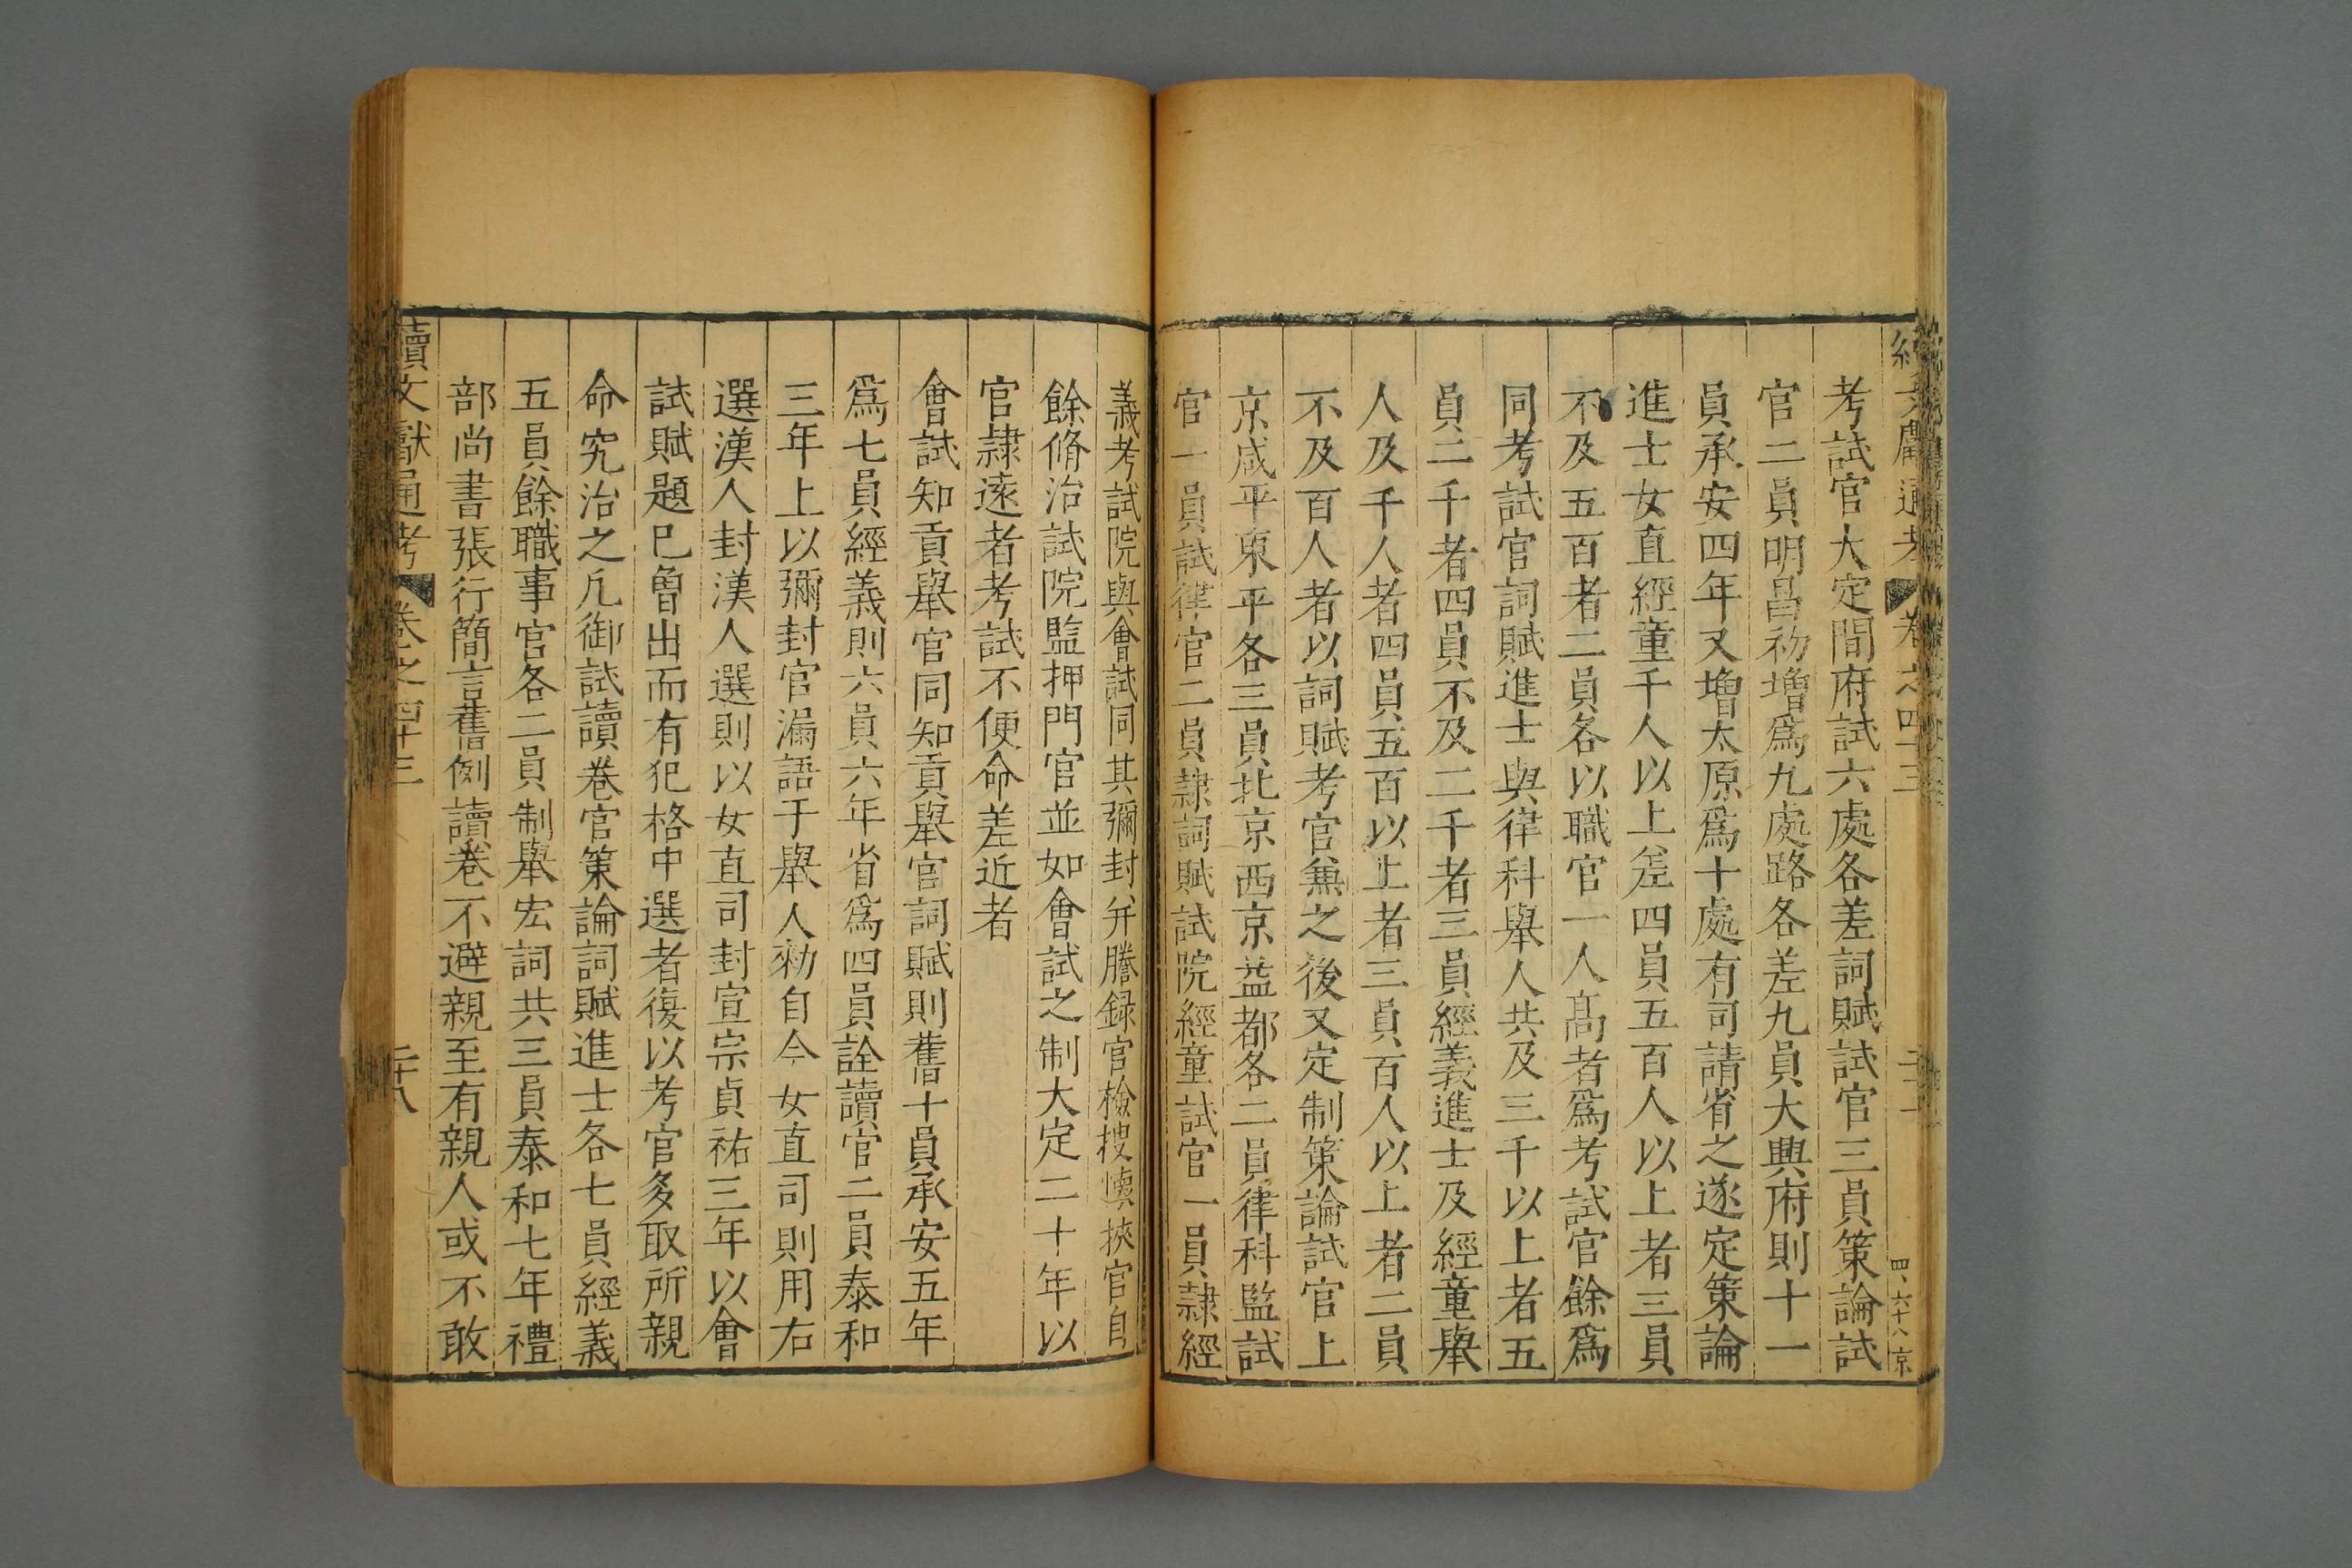 續文獻通考 卷之四十三
四、六十八 京
考試官大定間府試六處各差詞賦試官三員策論試
官二員明昌初增爲九處路各差九員大興府則十一
員承安四年又增太原爲十處有司請省之遂定策論
進士女直經童千人以上差四員五百人以上者三員
不及五百者二員各以職官一人高者爲考試官餘爲
同考試官詞賦進士與律科舉人共及三千以上者五
員二千者四員不及二千者三員經義進士及經童舉
人及千人者四員五百以上者三員百人以上者二員
不及百人者以詞賦考官兼之後又定制策論試官上
京咸平東平各三員北京西京益都各二員律科監試
官一員試律官二員隸詞賦試院經童試官一員隸經
義考試院與會試同其彌封并謄録官檢搜懷挾官自
餘脩治試院監押門官並如會試之制大定二十年以
官隸遠者考試不便命差近者
會試知貢舉官同知貢舉官詞賦則舊十員承安五年
爲七員經義則六員六年省爲四員詮讀官二員泰和
三年上以彌封官漏語于舉人勑自今女直司則用右
選漢人封漢人選則以女直司封宣宗貞祐三年以會
試賦題巳曾出而有犯格中選者復以考官多取所親
命究治之凡御試讀卷官策論詞賦進士各七員經義
五員餘職事官各二員制舉宏詞共三員泰和七年禮
部尚書張行簡言舊例讀卷不避親至有親人或不敢
續文獻通考 卷之四十三 二十八